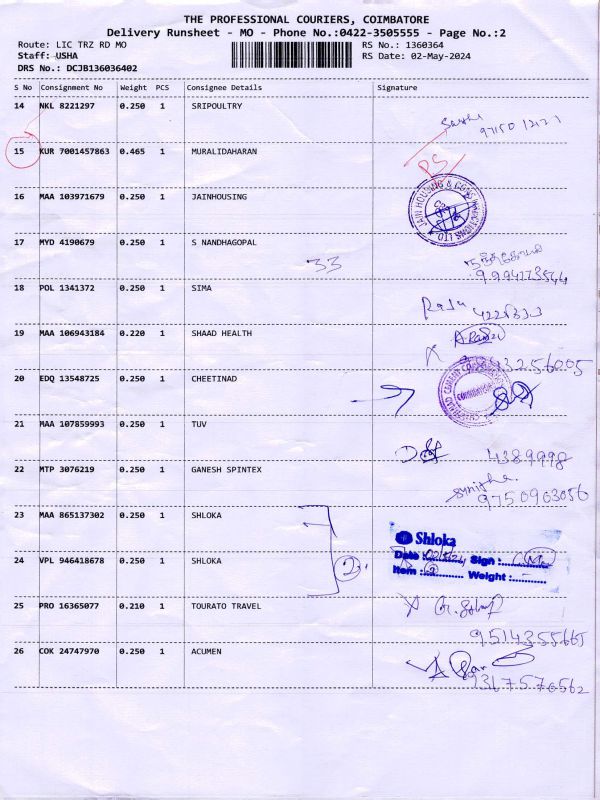 THE PROFESSIONAL COURIERS, COIMBATORE
Delivery Runsheet - MO - Phone No.:0422-3505555 - Page No.:2
Route: LIC TRZ RD MO RS No.: 1360364
Staff: USHA RS Date: 02-May-2024
DRS No.: DCJB136036402
S No Consignment No Weight PCS Consignee Details Signature
14 NKL 8221297 0.250 1 SRIPOULTRY
15 KUR 7001457863 0.465 1 MURALIDAHARAN
PS
16 MAA 103971679 0.250 1 JAINHOUSING
JAIN HOUSING & CONSTRUCTIONS LTD
17 MYD 4190679 0.250 1 S NANDHAGOPAL
33
18 POL 1341372 0.250 1 SIMA
Raju
19 MAA 106943184 0.220 1 SHAAD HEALTH
20 EDQ 13548725 0.250 1 CHEETINAD
21 MAA 107859993 0.250 1 TUV
4389998
22 MTP 3076219 0.250 1 GANESH SPINTEX
9750903056
23 MAA 865137302 0.250 1 SHLOKA
Shloka
Date : 02/5/24 Sign :
24 VPL 946418678 0.250 1 SHLOKA 2
Item : 2 Weight :
25 PRO 16365077 0.210 1 TOURATO TRAVEL
9514355665
26 COK 24747970 0.250 1 ACUMEN
9367570562